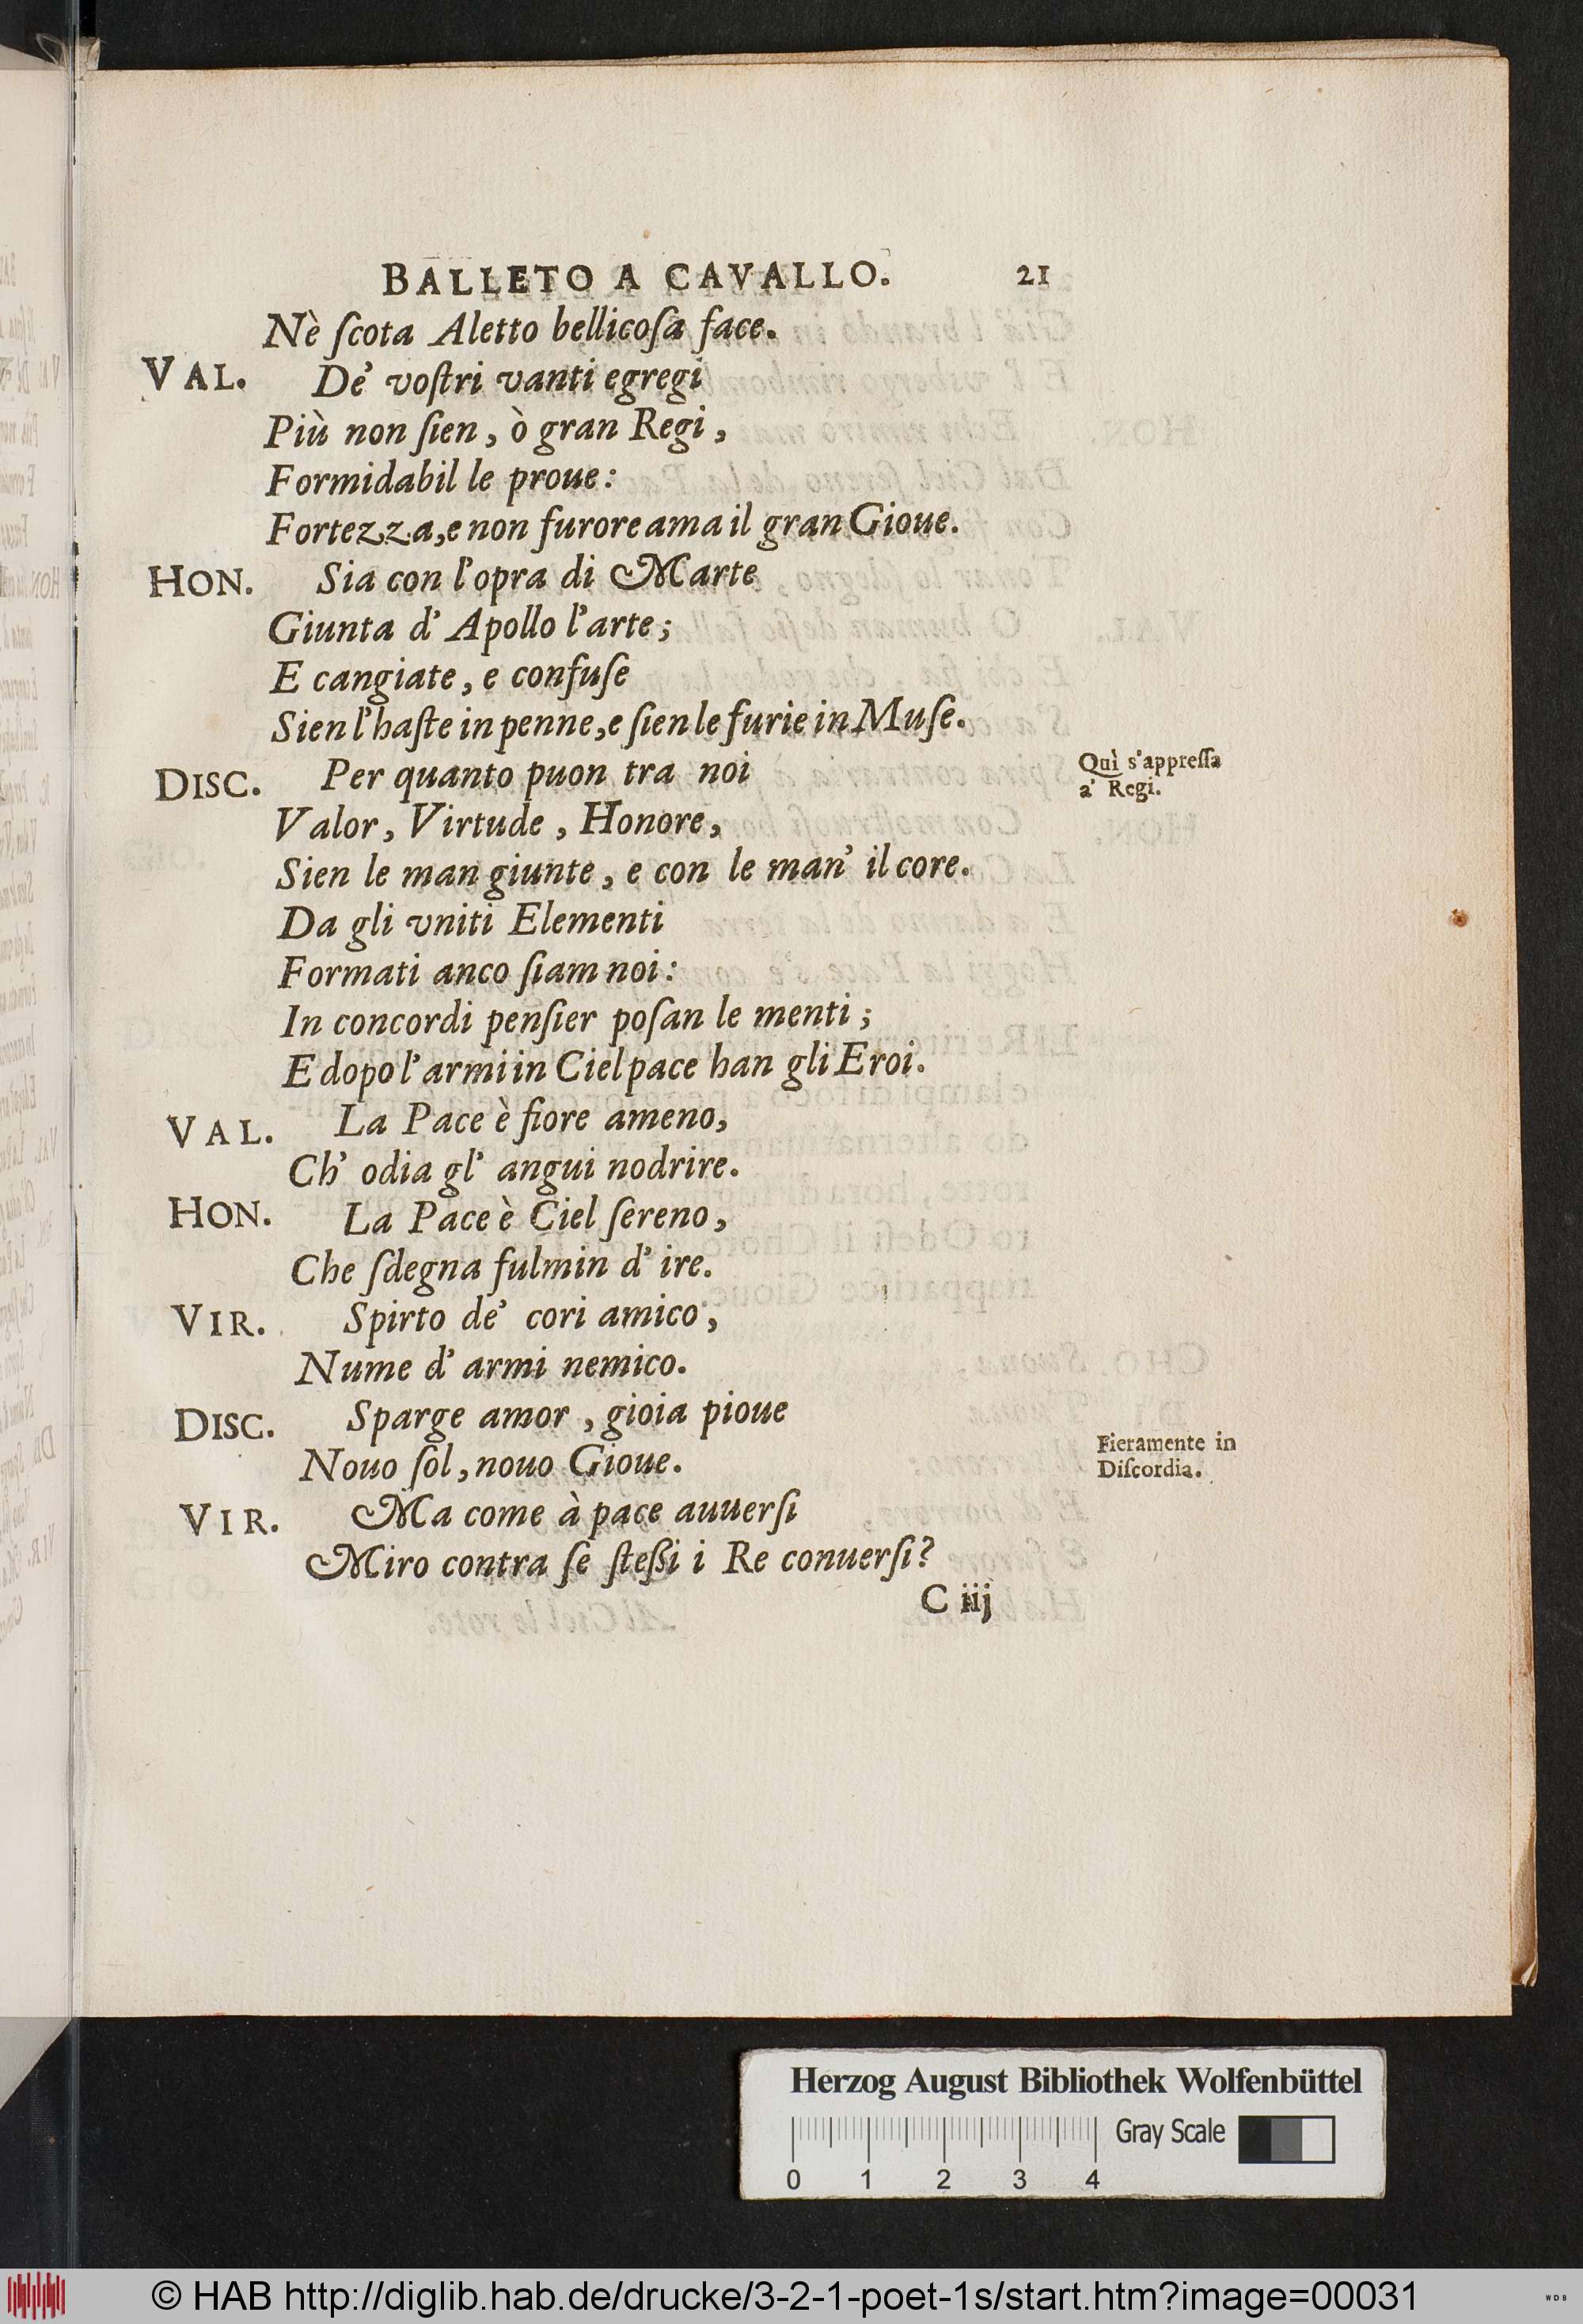 BALLETO A CAVALLO. 21
Nè ſcota Aletto bellicoſa face.
VAL. De' voſtri vanti egregi
Più non ſien, ò gran Regi,
Formidabil le proue:
Fortezza, e non furore ama il gran Gioue.
HON. Sia con l'opra di Marte
Giunta d' Apollo l'arte;
E cangiate, e confuſe
Sien l'haſte in penne, e ſien le furie in Muſe.
DISC. Per quanto puon tra noi
Quì s'appreſſa
a' Regi.
Valor, Virtude, Honore,
Sien le man giunte, e con le man' il core.
Da gli vniti Elementi
Formati anco ſiam noi:
In concordi penſier poſan le menti;
E dopo l' armi in Ciel pace han gli Eroi.
VAL. La Pace è fiore ameno,
Ch' odia gl' angui nodrire.
HON. La Pace è Ciel ſereno,
Che ſdegna fulmin d' ire.
VIR. Spirto de' cori amico,
Nume d' armi nemico.
DISC. Sparge amor, gioia pioue
Nouo ſol, nouo Gioue.
Fieramente in
Diſcordia.
VIR. Ma come à pace auuerſi
Miro contra ſe ſteßi i Re conuerſi?
C iij
Herzog August Bibliothek Wolfenbüttel
Gray Scale
0 1 2 3 4
© HAB http://diglib.hab.de/drucke/3-2-1-poet-1s/start.htm?image=00031
WDB